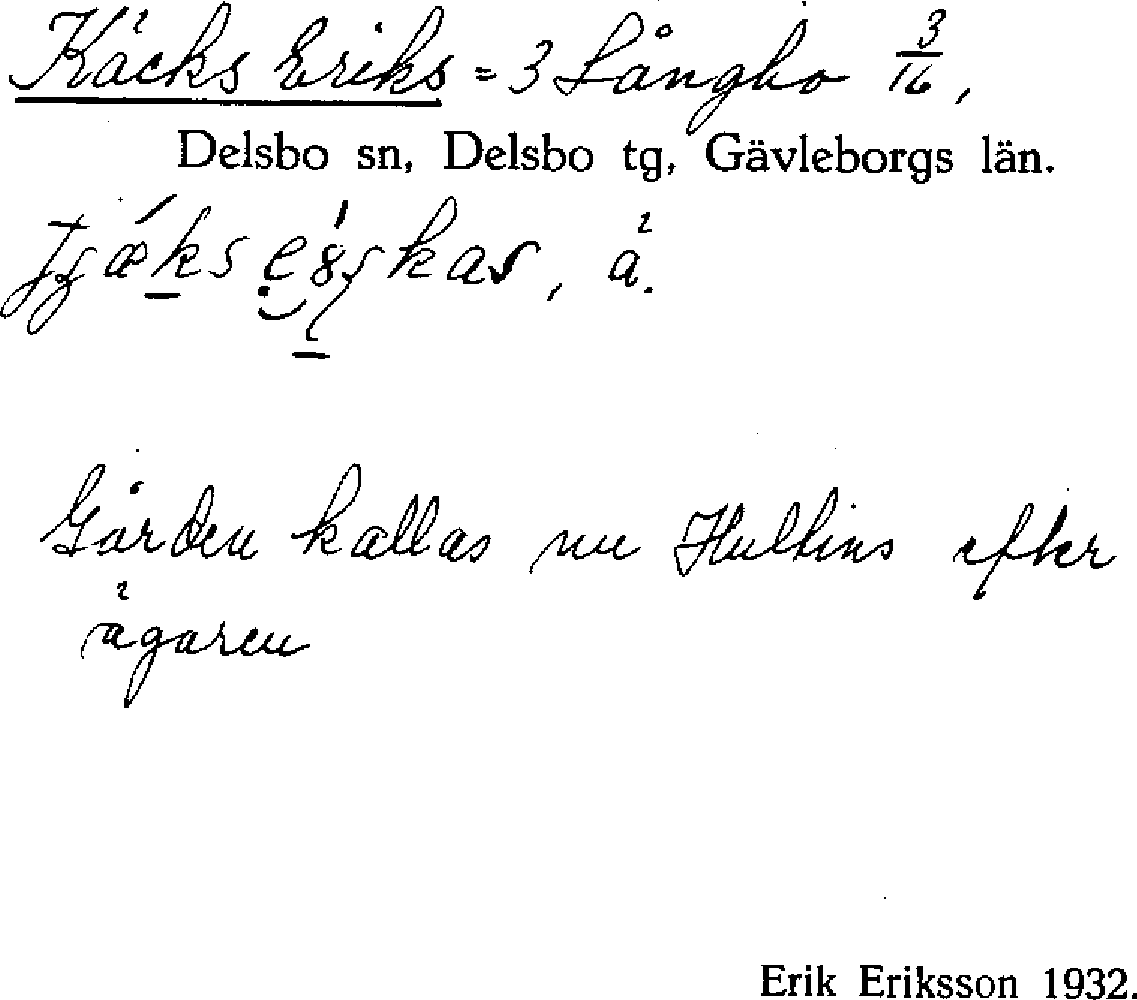 Käcks Eriks = 3 Långbo 3/16,
Delsbo sn, Delsbo tg, Gävleborgs län.
ä.
Gården kallas nu Hultins efter
ägaren
Erik Eriksson 1932.